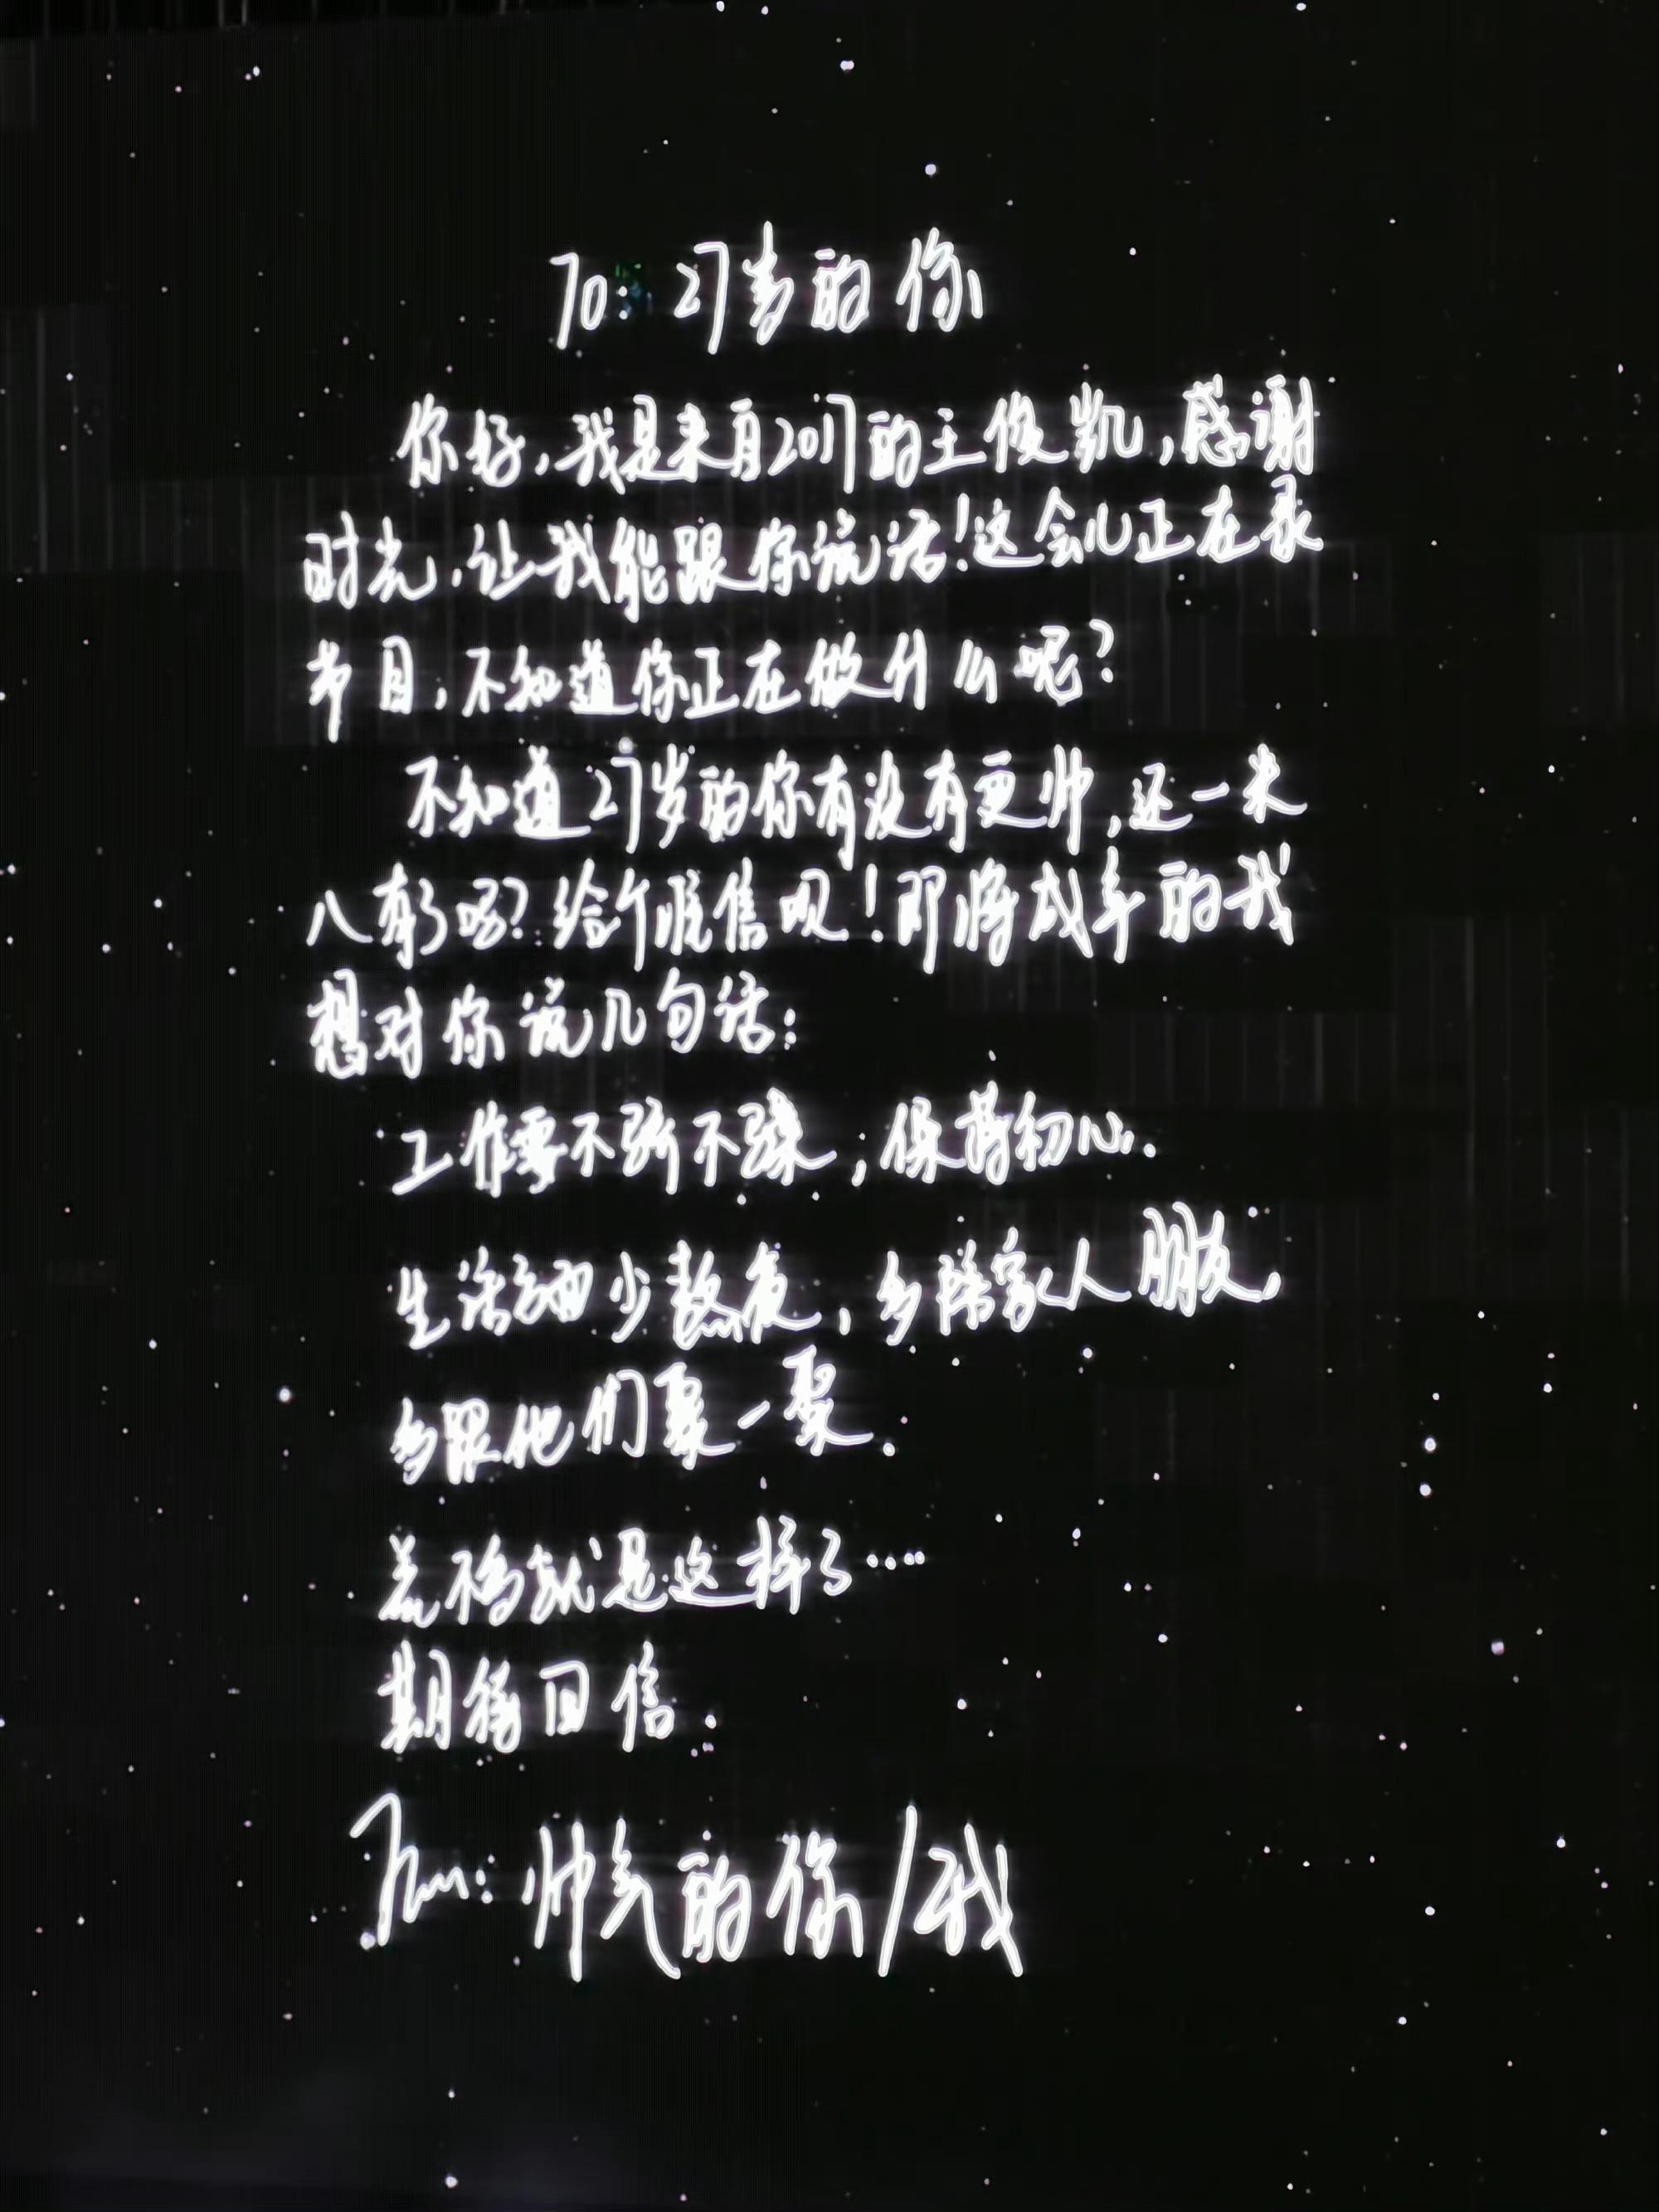 To: 27岁的你
你好,我是来自2017的王俊凯,感谢
时光,让我能跟你说话!这会儿正在录
节目,不知道你正在做什么呢?
不知道27岁的你有没有更帅,还一米
八有了吗?给个准信呗!即将成年的我
想对你说几句话:
工作要不骄不躁,保持初心.
生活方面少熬夜,多陪家人朋友,
多跟他们聚一聚.
差不多就是这样了……
期待回信.
From: 帅气的你/我